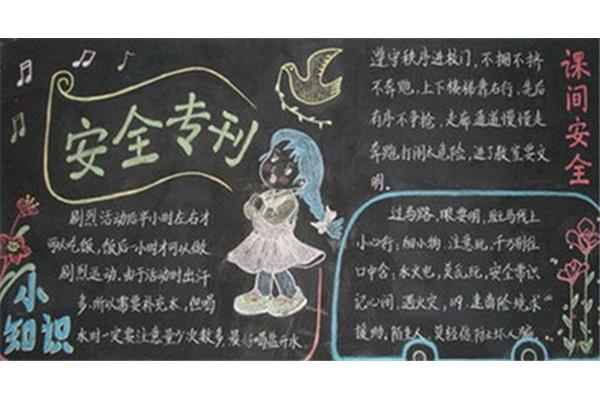 安全专刊
剧烈活动后半小时左右才
可以吃饭，饭后一小时才可以做
剧烈运动，由于活动时出汗
多，所以需要补充水，但喝
水时一定要注意量少次数多，最好喝盐开水。
小
知识
遵守秩序进校门，不拥不挤
不奔跑，上下楼梯靠右行，先后
有序不争抢，走廊通道慢慢走
奔跑打闹太危险，进了教室要文
明。
课间安全
过马路，眼要明，斑马线上
小心行；细小物，注意玩，千万别往
口中含；水火电，莫乱玩，安全常识
记心间，遇火灾，119，走离险境求
援助，陌生人，莫轻信，防止坏人骗。